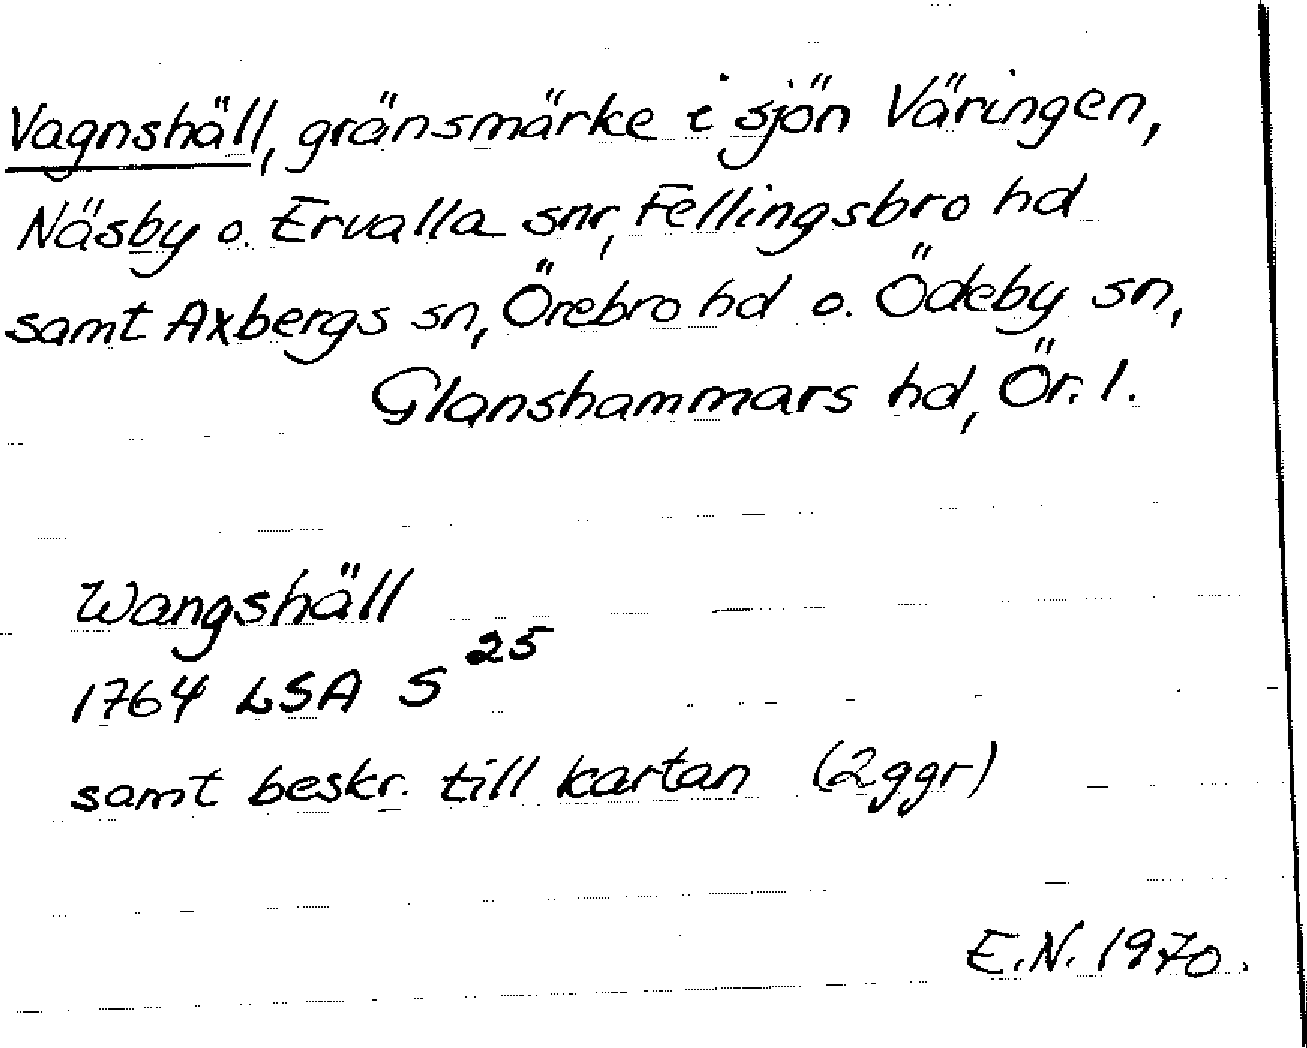 Vagnshäll, gränsmärke i sjön Väringen,
Näsby o. Ervalla snr, Fellingsbro hd
samt Axbergs sn, Örebro hd o. Ödeby sn,
Glanshammars hd, Ör. l.
Wangshäll
1764 LSA S 25
samt beskr. till kartan (2ggr)
E.N. 1970.